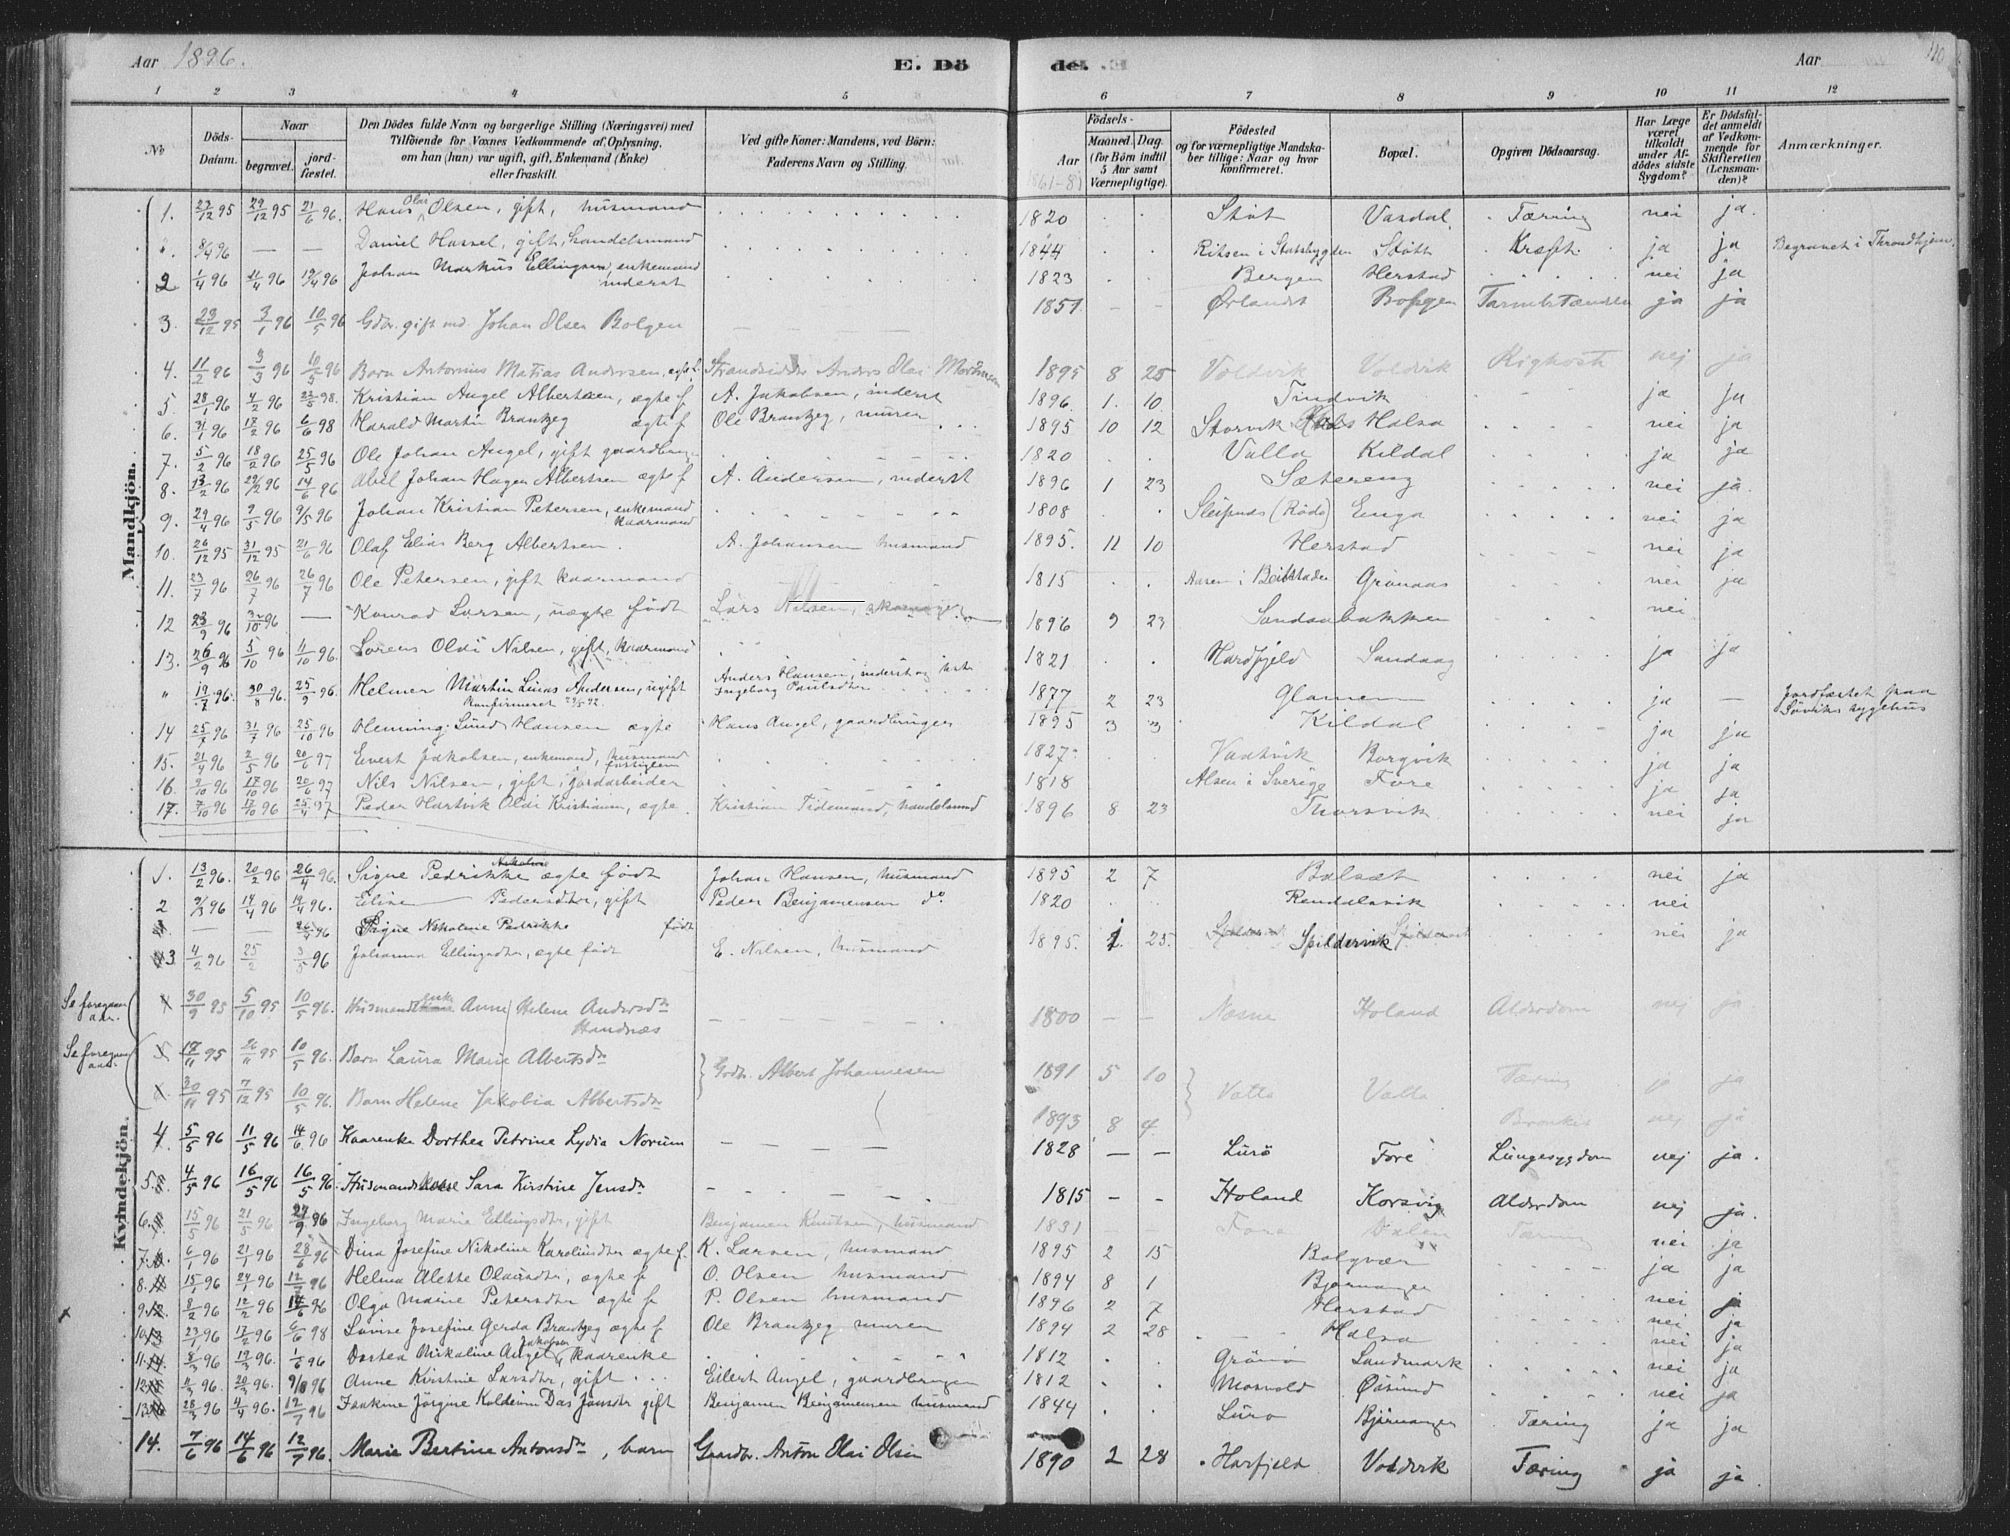 Aar 1896. E. Dö de. Aar 110
1 2 3 4 5 6 7 8 9 10 11 12
No Döds-Datum. Naar begravel. jordfæstet. Den Dödes fulde Navn og borgerlige Stilling (Næringsvei) med Tilföiende for Voxnes Vedkommende af Oplysning, om han (hun) var ugift, gift, Enkemand (Enke) eller fraskilt. Ved gifte Koner: Mandens, ved Börn: Faderens Navn og Stilling. Födsels- Aar Maaned. Dag. (for Börn indtil 5 Aar samt Værnepligtige). Födested og for værnepligtige Mandskaber tillige: Naar og hvor konfirmeret. Bopæl. Opgiven Dödsaarsag. Har Læge været tilkaldt under Afdödes sidste Sygdom? Er Dödsfaldet anmeldt af Vedkommende for Skifteretten (Lensmanden)? Anmærkninger.
Mandkjön.
1. 23/12 95 29/12 95 21/6 96. Hans Olai Olsen, gift, husmand 1820 Støt Vasdal Tæring nei ja.
". 8/4 96 — — Daniel Hassel, gift, handelsmand 1844 Ritsen i Statsbygden Støtt Kræft. ja ja Begravet i Throndhjem.
2 1/4 96 11/4 96 19/4 96 Johan Markus Ellingsen, enkemand inderst 1823 Bergen Herstad nei ja
3. 23/12 95 3/1 96 10/5 96 Gdbr. gift md Johan Olsen Bolgen 1851 Ørlandet Bolgen ja ja
4. 11/2 96 3/3 96 10/5 96 Barn Antonius Matias Andersen, ægte f. Strandsidder Anders Olai 1895 8 25 Voldvik Voldvik Kighoste nej ja
5. 28/1 96 4/2 96 23/5 98. Kristian Angel Albertsen, ægte f A. Jakobsen, inderst 1896. 1. 10. Tindvik ja ja
6. 31/1 96 17/2 96 6/6 98 Harald Martin Brantzeg ægte f Ole Brantzeg, murer 1895 10 12 Storvik Halsa nei ja
7. 5/2 96 18/2 96 25/5 96 Ole Johan Angel, gift gaardbruger 1820 Valla Kildal ja ja
8. 13/2 96 29/2 96 14/6 96 Abel Johan Hagen Albertsen ægte f A. Andersen, inderst 1896 1 23 Sætereng nei ja.
9. 29/4 96 9/5 96 9/5 96 Johan Kristian Petersen, enkemand kaarmand 1808 Sleipnes (Rødø) Enga nei ja
10. 26/12 95 31/12 95 21/6 96 Olaf Elias Berg Albertsen. A. Johansen husmand 1895. 11 10 Herstad nei ja
11. 23/7 96 26/7 96 26/7 96 Ole Petersen, gift kaarmand 1815 Aasen i Beitstaden Grønaas nei ja
12 23/9 96 3/10 96 — Konrad Larsen, uægte født Lars Nilsen, 1896 9 23 Sandaabakken nei
13. 26/9 96 5/10 96 11/10 96. Lorens Oldi Nilsen, gift, kaarmand 1821 Hardfjeld Sandaag ja ja
" 19/7 96. 30/8 96. 25/9 96. Helmer Martin Linas Andersen, ugift konfirmeret 29/5 92. Anders Hansen, inderst og Ingeborg Paulsdtr 1877 2 23 Glamen ja — Jordfæstet paa Søviks sygehus
14 25/7 96 31/7 96 25/10 96 Henning Lund Hansen ægte Hans Angel, gaardbruger 1895 3 3 Kildal ja ja
15. 21/4 96 2/5 96 20/6 97 Evert Jakobsen, enkemand, husmand 1827 Vaatvik Borgvik ja ja
16. 9/10 96 17/10 96 20/6 97 Nils Nilsen, gift, jordarbeider 1818 Alsen i Sverige Fore ja ja
17. 7/10 96 17/10 96 25/4 97 Peder Hartvik Oldi Kristiansen, ægte Kristian Tidemand, handelsmd 1896 8 23 Thorsvik nei ja
Kvindekjön.
1. 13/2 96. 20/2 96 26/4 96. Signe Pedrikke Nikoline ægte født Johan Hansen, husmand 1895 2 7 Balsæt nei ja
2 9/3 96 14/4 96 19/4 96. Elisen Pedersdtr, gift Peder Benjamensen do 1820 Rendalsvik nei
— — 26/4 96 Signe Nikoline Pedrikke født
3 4/2 96 25/2 3/5 96 Johanna Ellingsdtr, ægte født E. Nilsen, husmand 1895. 1. 25. Spildervik nei ja
Se foregaaende aar. 4 30/9 95 5/10 95 10/5 96. Husmandsenke Anne Helene Andersdtr Handnæs 1800 — — Næsne Holand Alderdom nej ja
Se foregaaende aar. 5 17/11 95 26/11 95 10/5 96. Barn Laura Marie Albertsdtr Gdbr. Albert Johannesen 1891 5 10 Valla Valla Tæring ja
30/11 95 7/12 95 10/5 96. Barn Helene Jakobia Albertsdtr 1893 8 4 nej ja
4 5/5 96 11/5 96 14/6 96 Kaarenke Dorthea Petrine Lydia Norum 1828 — — Lurö Fore Lungesygdom nej ja.
5. 4/5 96 16/5 96 16/5 96 Husmandskone Sara Kirstine Jensdtr 1815 — — Holand Korsvig Alderdom nej ja.
6. 15/5 96 21/5 96 27/9 96 Ingeborg Marie Ellingsdtr, gift Benjamen Knutsen, husmand 1831 Fore Dalen Tæring nei ja
7. 6/1 96 21/1 96 28/6 96 Dina Josefine Nikoline Karolinedtr ægte f. K. Larsen, husmand 1895 2 15 Bolgvær ja ja
8. 15/1 96 24/1 96 12/7 96 Helma Alette Olausdtr, ægte f O. Olsen husmand 1894 8 1 Bjernanger nei ja
9. 8/2 96 12/2 96 14/6 96 Olga Marie Petersdtr ægte f P. Olsen husmand 1896 2 7 Herstad nei ja
10. 23/1 96 17/2 96 6/6 98 Lovise Josefine Gerda Brantzeg ægte f Ole Brantzeg murer 1894 2 28 Halsa nei ja
11. 8/3 96 19/3 96. 1/6 96 Dortea Nikoline Angel Jakobsen kaarenke 1812 Grönö Landmark nei ja
12. 96. 20/3 96. 9/8 96 Anne Kirstine Larsdtr, gift Eilert Angel, gaardbruger 1812 Mosvold Øisund nei ja
13. 28/3 96 4/4 96. 12/7 96 Jørgine Das Jonsdtr gift Benjamen Benjamensen husmand 1844 Lurø Bjørnanger Tæring ja ja
14. 7/6 96 14/6 96 12/7 96. Marie Bertine Antonsdtr, barn Gaardbr. Anton Olai Olsen 1890 2 28 Harfjeld Voldvik Tæring ja ja.